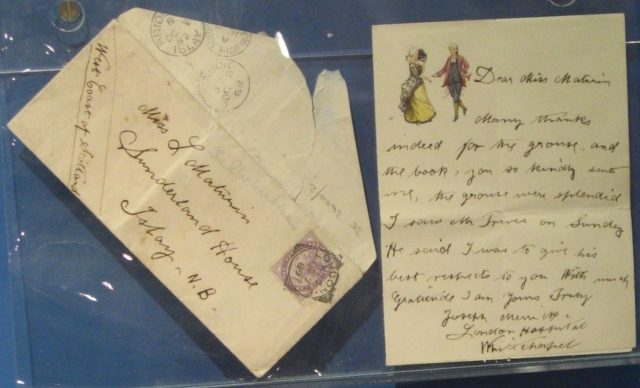 West Coast of Scotland
Miss L Maturin
Sunderland House
Islay - N.B.
LONDON
Dear Miss Maturin
Many thanks
indeed for the grouse and
the book, you so kindly sent
me, the grouse were splendid
I saw Mr Treves on Sunday
He said I was to give his
best respects to you With much
Gratitude I am Yours Truly
Joseph Merrick.
London Hospital
Whitechapel